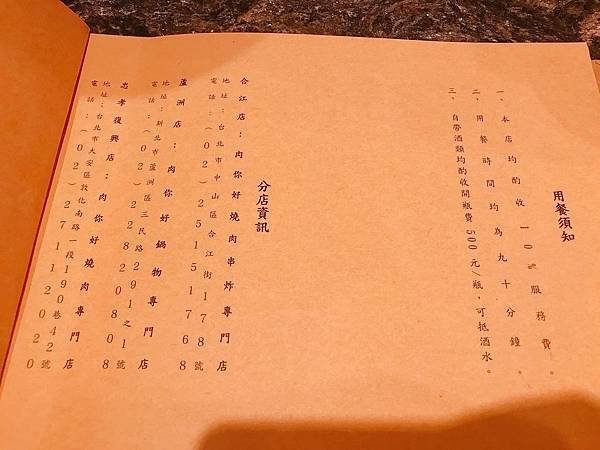 用餐須知
一、本店均酌收10%服務費。
二、用餐時間均為九十分鐘。
三、自帶酒類均酌收開瓶費500元/瓶，可抵酒水。
分店資訊
合江店：肉你好燒肉串炸專門店
地址：台北市中山區合江街178號
電話：(02)25151768
蘆洲店：肉你好鍋物專門店
地址：新北市蘆洲區三民路291之1號
電話：(02)22820808
忠孝復興店：肉你好燒肉專門店
地址：台北市大安區敦化南路一段190巷42號
電話：(02)27112020